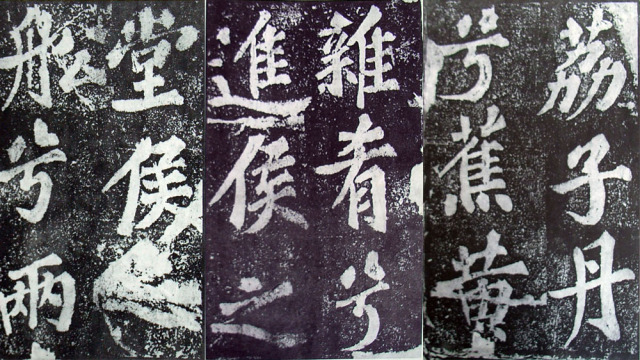 荔子丹
兮蕉黃
雜肴兮
進侯之
堂侯之
船兮兩